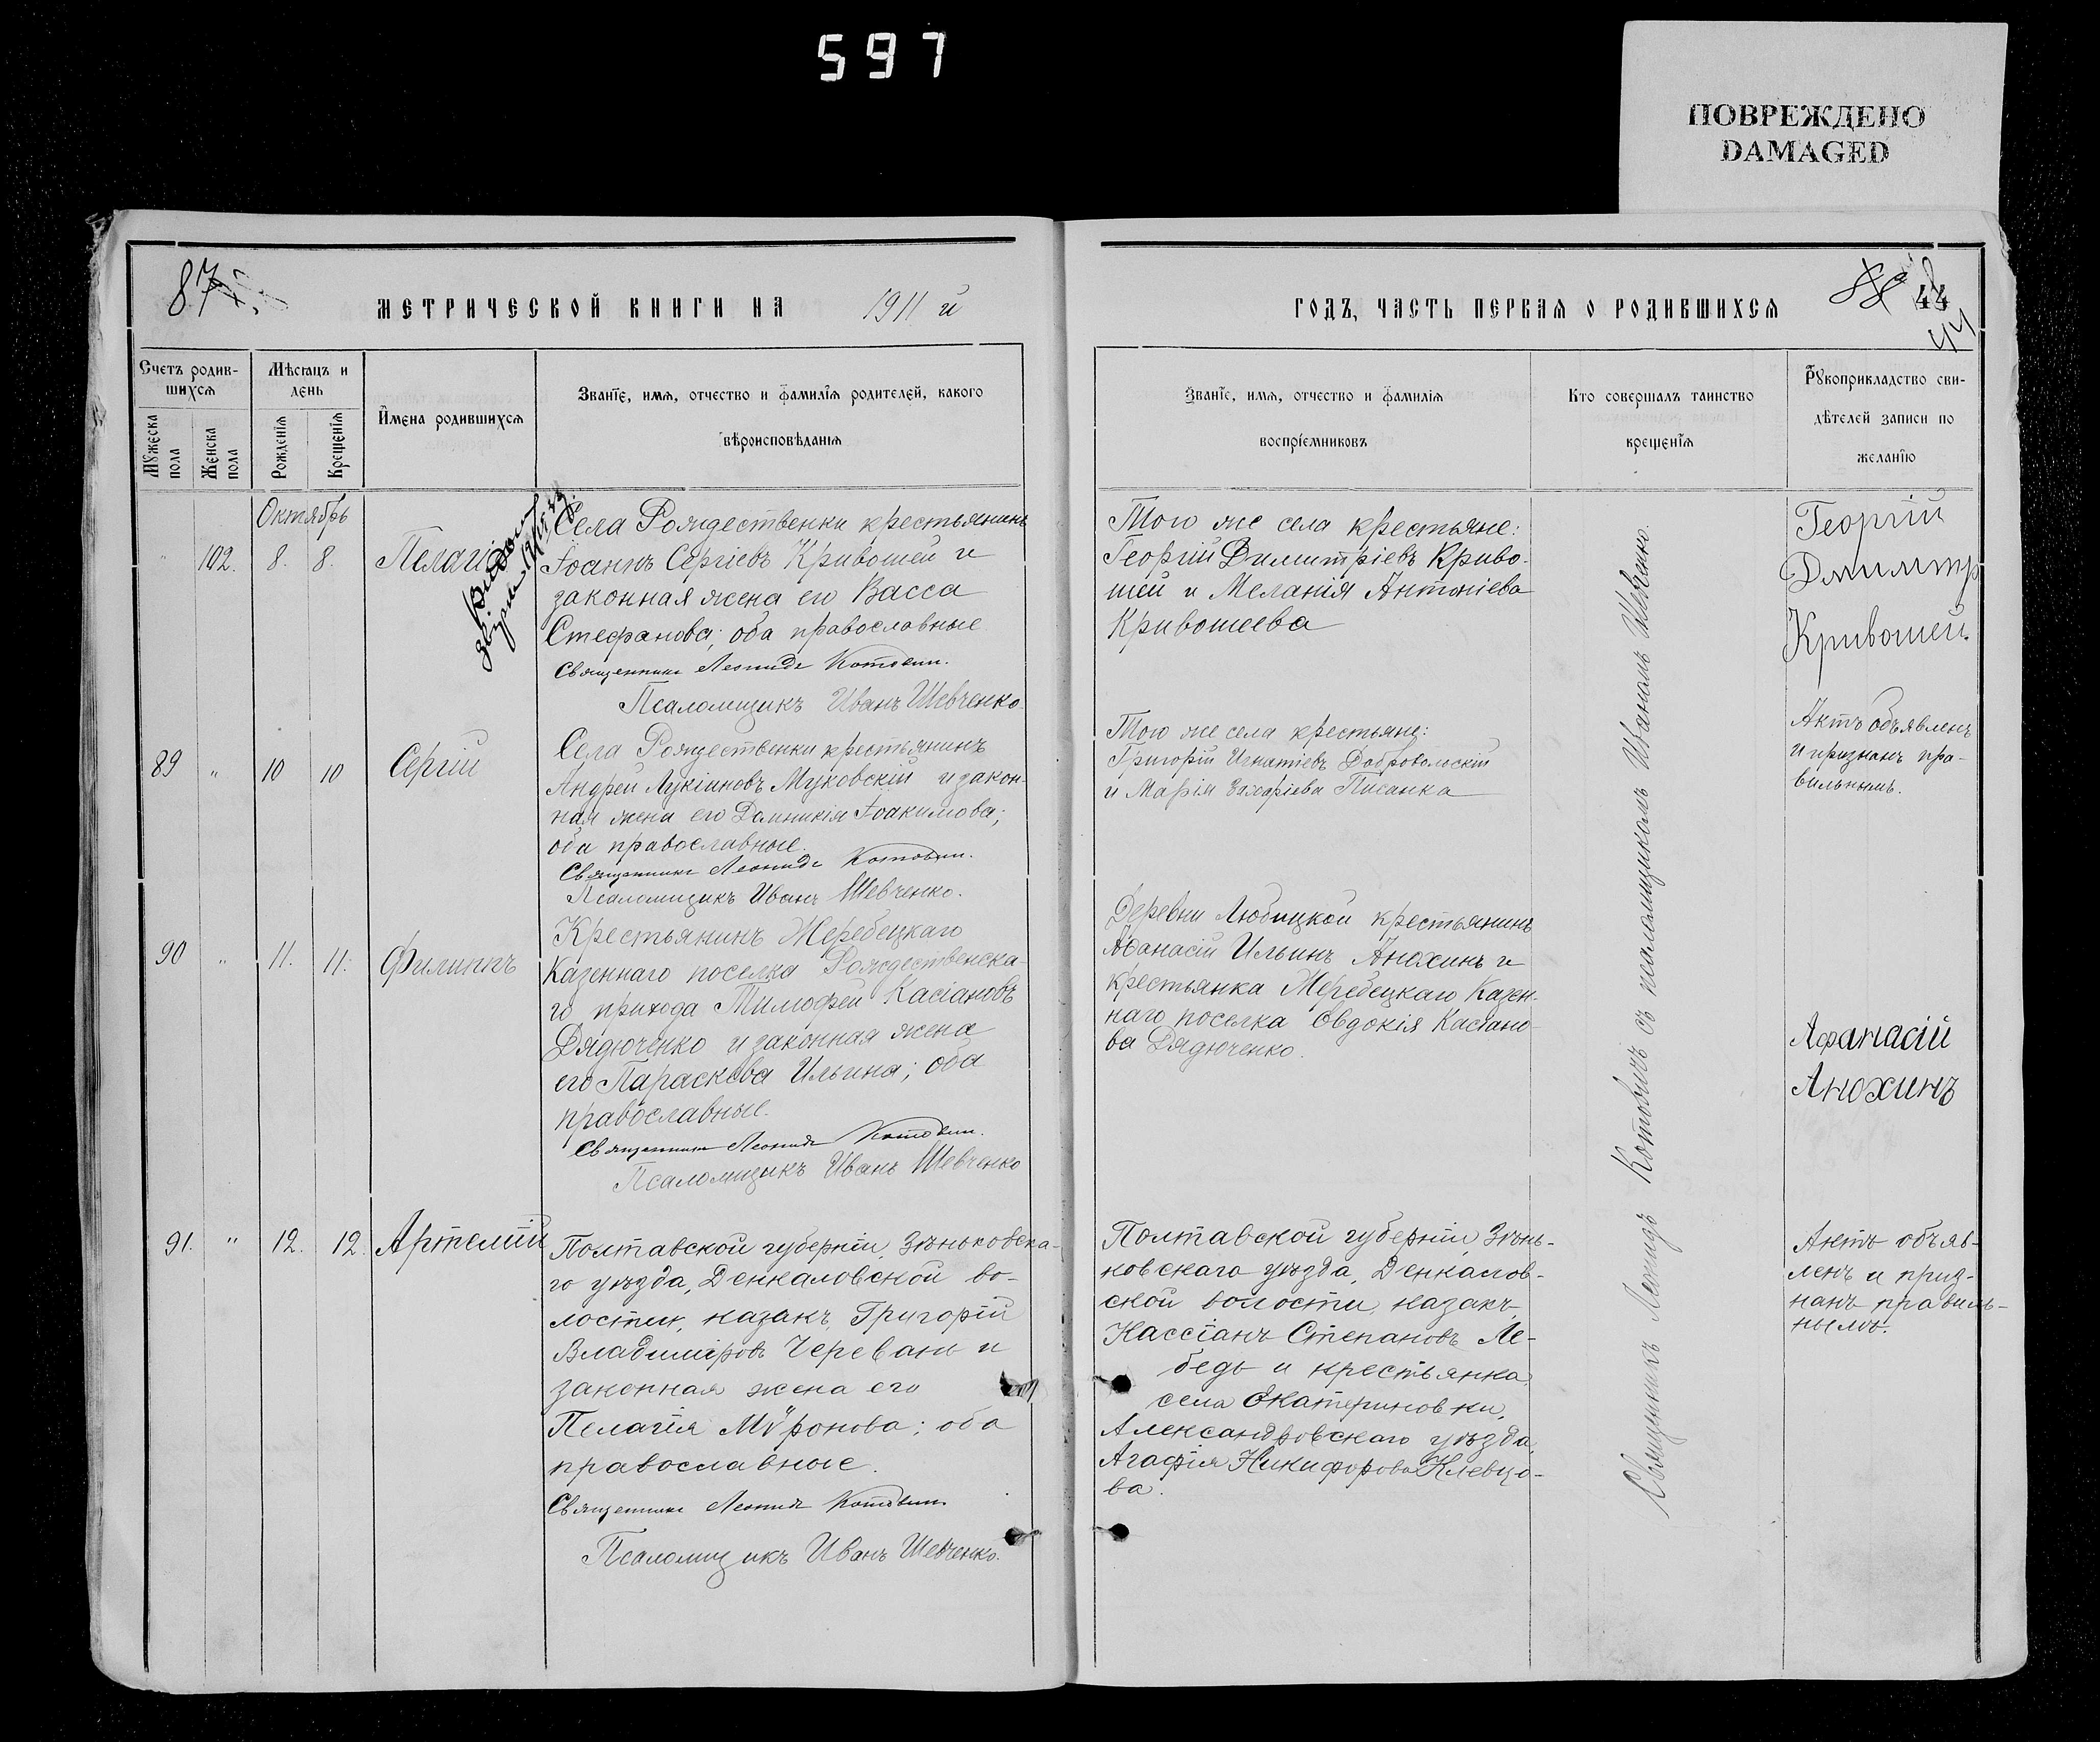 597
ПОВРЕЖДЕНО
DAMAGED
87
МЕТРИЧЕСКОЙ КНИГИ НА 1911 й
Счетъ родив-
шихся
Мѣсяцъ и
день
Имена родившихся
Званіе, имя, отчество и фамилія родителей, какого
вѣроисповѣданія
Мужеска
пола
Женска
пола
Рожденія
Крещенія
Октябрь
102. 8. 8.
Пелагія
Села Рождественки крестьянинъ
Іоаннъ Сергіевъ Кривошей и
законная жена его Васса
Стефанова; оба православные
Священникъ Леонидъ Котович.
Псаломщикъ Иванъ Шевченко
89 " 10 10
Сергій
Села Рождественки крестьянинъ
Андрей Лукіановъ Муковскій и закон-
ная жена его Домникія Іоакимова;
оба православные.
Священникъ Леонидъ Котович.
Псаломщикъ Иванъ Шевченко.
90 " 11. 11.
Филиппъ
Крестьянинъ Жеребецкаго
Казеннаго поселка Рождественска-
го прихода Тимофей Касіановъ
Дядюченко и законная жена
его Параскева Ильина; оба
православные.
Священникъ Леонидъ Котович.
Псаломщикъ Иванъ Шевченко
91. " 12. 12.
Артемій
Полтавской губерніи, Зѣньковска-
го уѣзда, Денкаловской во-
лости, казакъ Григорій
Владиміровъ Черевань и
законная жена его
Пелагія Мѵронова; оба
православные.
Священникъ Леонидъ Котович.
Псаломщикъ Иванъ Шевченко.
ГОДЪ, ЧАСТЬ ПЕРВАЯ О РОДИВШИХСЯ
44
44
Званіе, имя, отчество и фамилія
воспріемниковъ
Кто совершалъ таинство
крещенія
Рукоприкладство сви-
дѣтелей записи по
желанію
Того же села крестьяне:
Георгій Димитріевъ Криво-
шей и Меланія Антоніева
Кривошеева
Георгій
Дмитр
Кривошей
Того же села крестьяне:
Григорій Игнатіевъ Добровольскій
и Марія Писанка
Актъ объявленъ
и признанъ пра-
вильнымъ.
Деревни Любицкой крестьянинъ
Аѳанасій Ильинъ Анохинъ и
крестьянка Жеребецкаго Казен-
наго поселка Евдокія Касіано-
ва Дядюченко.
Афанасій
Анохинъ
Полтавской губерніи, Зѣнь-
ковскаго уѣзда, Денкалов-
ской волости, казакъ
Кассіанъ Степановъ Ле-
бедь и крестьянка
села Екатериновки,
Александровскаго уѣзда,
Агафія Никифорова Клевцо-
ва.
Актъ объяв-
ленъ и приз-
нанъ правиль-
нымъ.
Священникъ Леонидъ Котовичъ съ псаломщикомъ Иваномъ Шевченко.